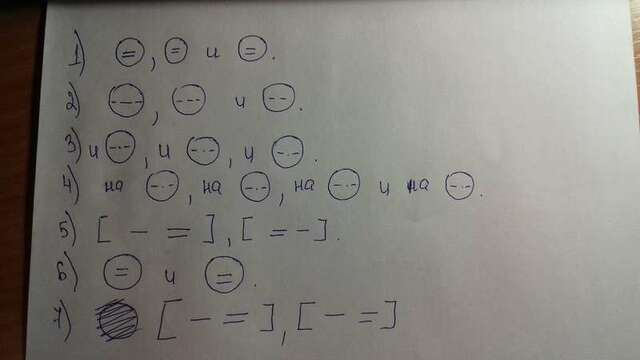 1) (=), (=) и (=).
2) (---), (---) и (---).
3) и (-·-), и (-·-), и (-·-).
4) на (-·-), на (-·-), на (-·-) и на (-·-).
5) [ — = ], [ = - ].
6) (=) и (=).
7) [ — = ], [ — = ]